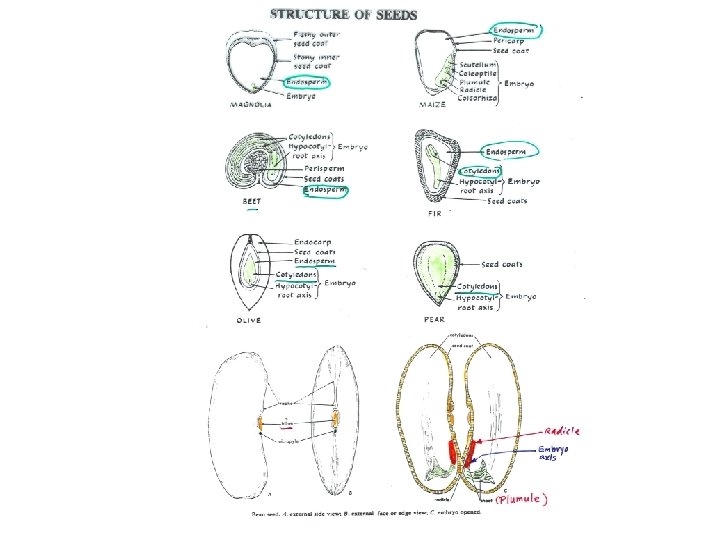 STRUCTURE OF SEEDS
Fleshy outer
seed coat
Stony inner
seed coat
Endosperm
Embryo
MAGNOLIA
Endosperm
Pericarp
Seed coat
Scutellum
Coleoptile
Plumule
Radicle
Coleorhiza
Embryo
MAIZE
Cotyledons
Hypocotyl-
root axis
Embryo
Perisperm
Seed coats
Endosperm
BEET
Endosperm
Cotyledons
Hypocotyl-
root axis
Embryo
Seed coats
FIR
Endocarp
Seed coats
Endosperm
Cotyledons
Hypocotyl-
root axis
Embryo
OLIVE
Seed coats
Cotyledons
Hypocotyl-
root axis
Embryo
PEAR
cotyledons
seed coat
hilum
micropyle
A
B
Radicle
Embryo
axis
radicle
C
(Plumule)
Bean seed. A. external side view; B. external face or edge view; C. embryo opened.